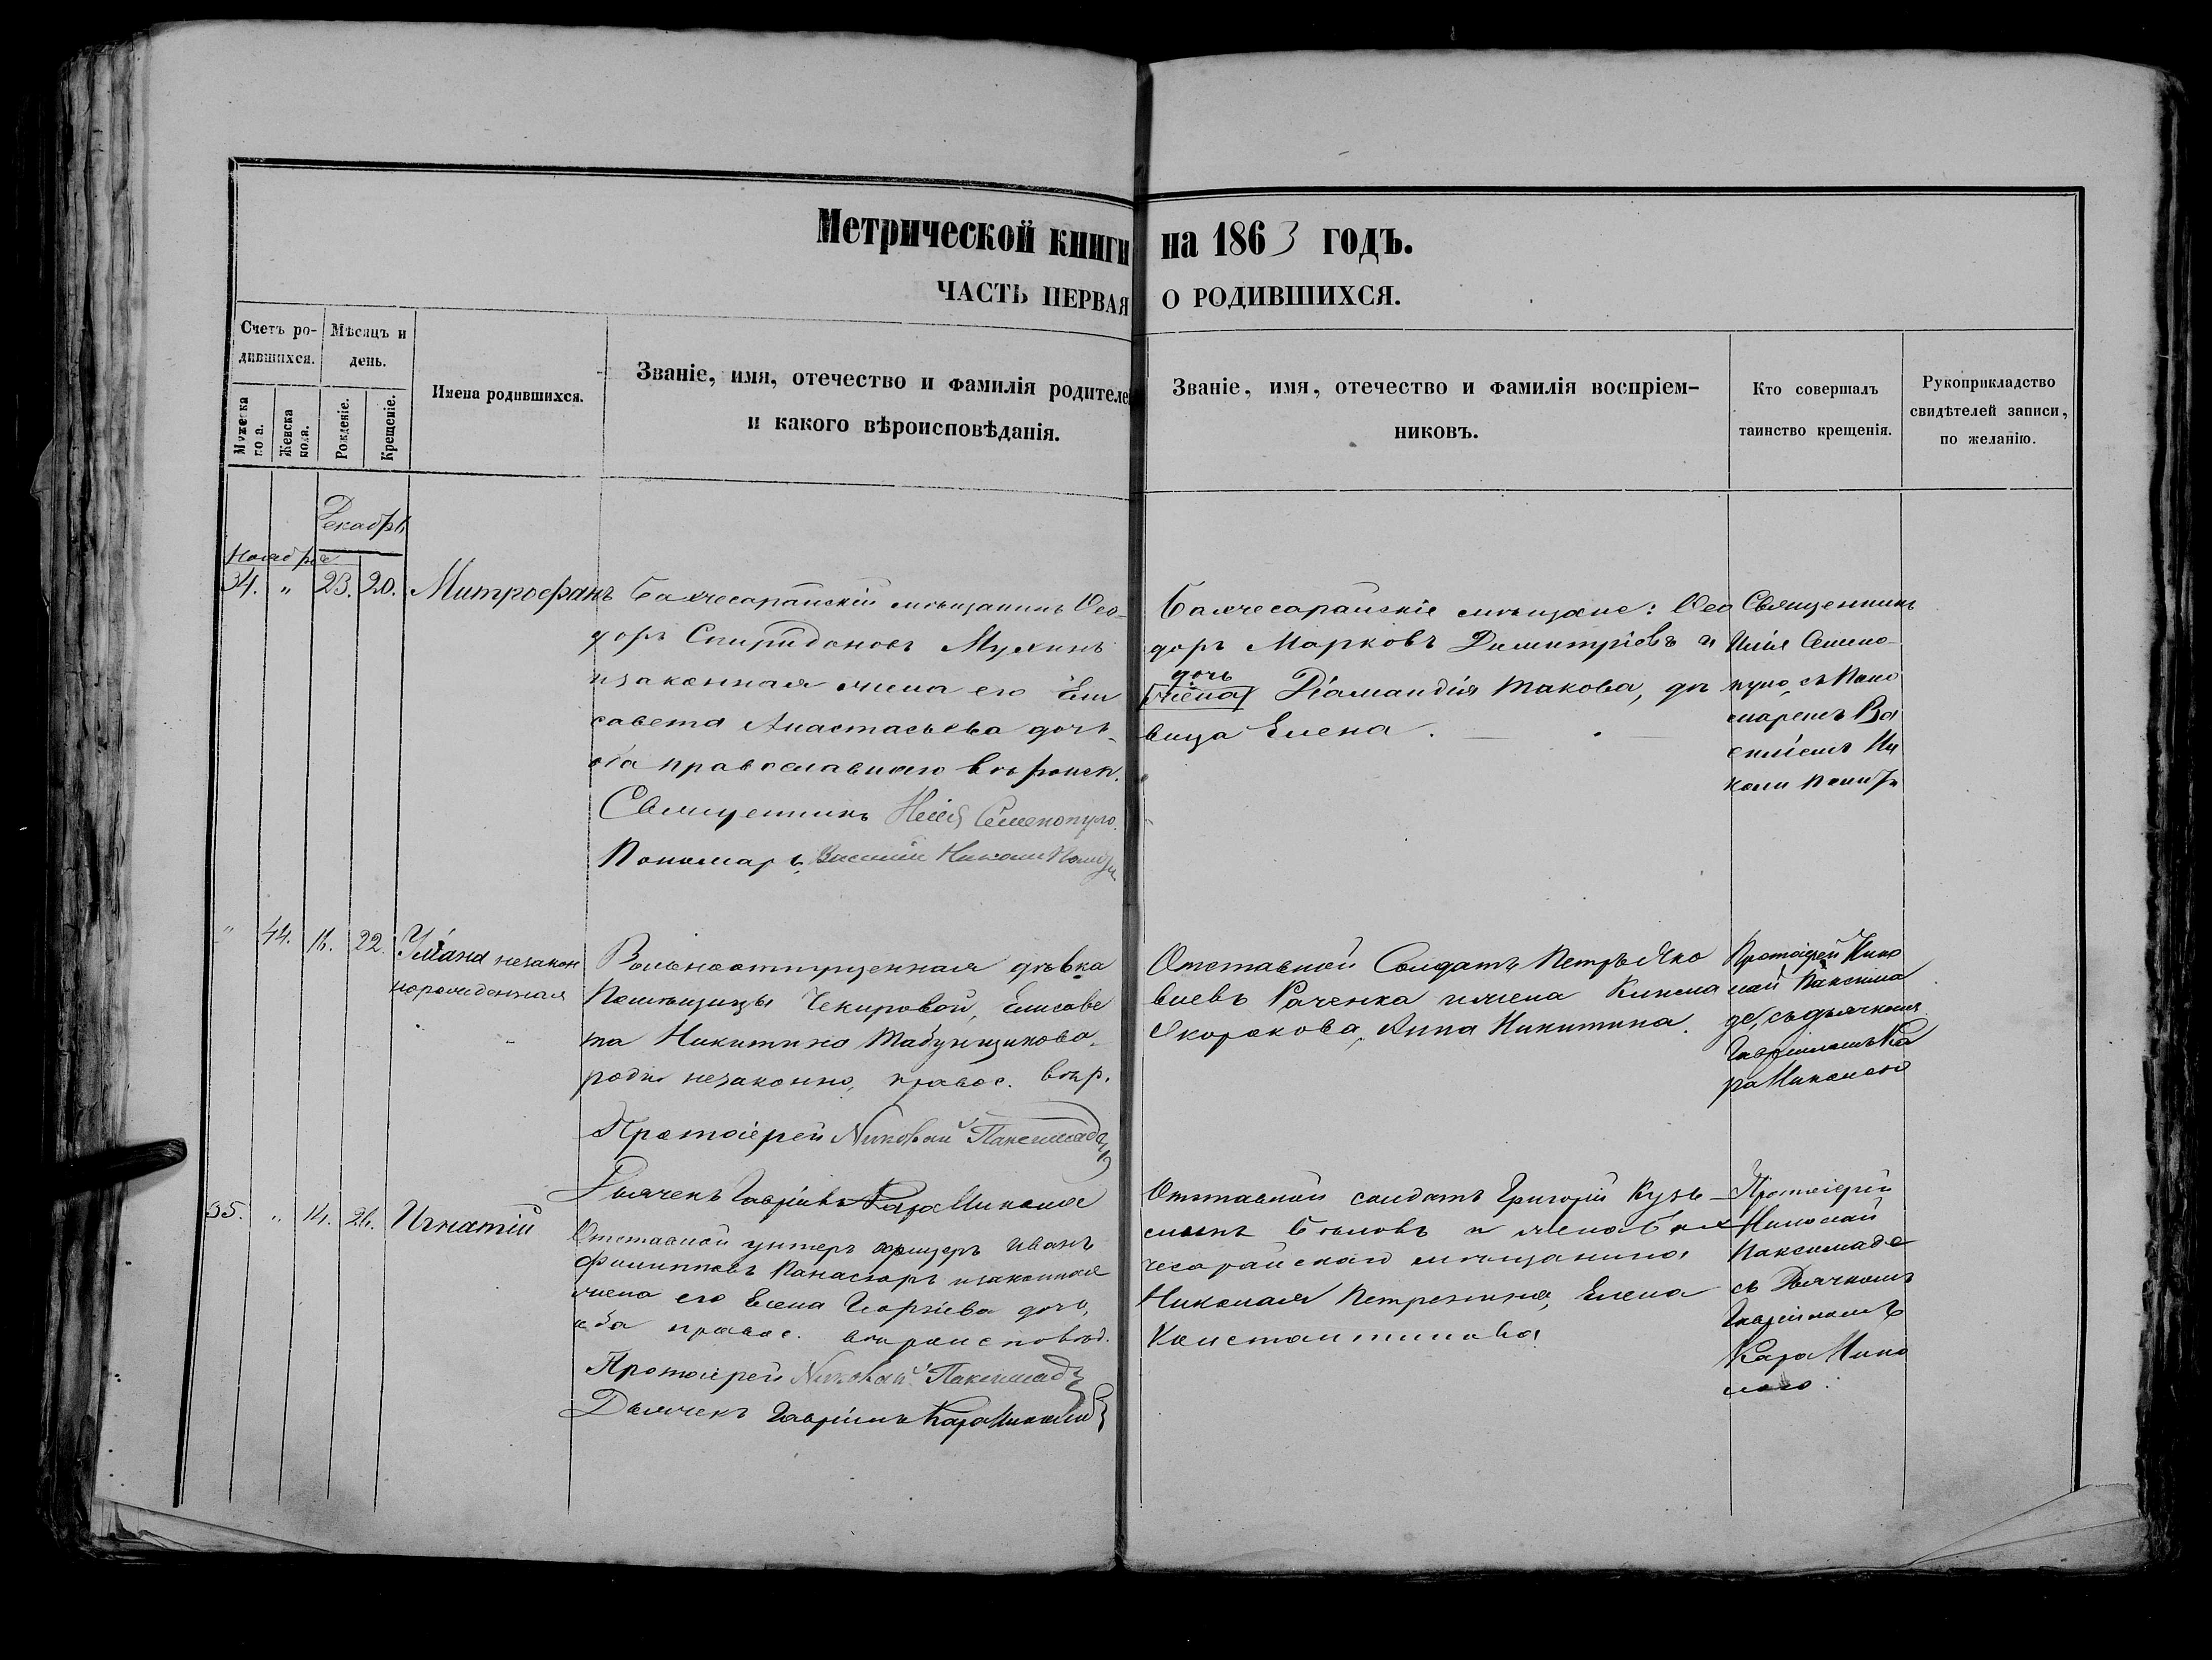 Метрической книги на 1863 годъ.
ЧАСТЬ ПЕРВАЯ О РОДИВШИХСЯ.
Счетъ ро-
дившихся.
Мужеска
пола.
Женска
пола.
Мѣсяцъ и
день.
Рожденіе.
Крещеніе.
Имена родившихся.
Званіе, имя, отечество и фамилія родителей
и какого вѣроисповѣданія.
Званіе, имя, отечество и фамилія воспріем-
никовъ.
Кто совершалъ
таинство крещенія.
Рукоприкладство
свидѣтелей записи,
по желанію.
Декабрь
Ноября
34. " 23. 20. Митрофанъ
Бахчесарайскій мѣщанинъ Ѳео-
доръ Спиридоновъ Мухинъ
и законная жена его Ели
савета Анастасьева дочь
оба православнаго вѣроисп.
Священникъ Илія Семенопуло.
Пономарь Василій Николи
Бахчесарайскіе мѣщане: Ѳео
доръ Марковъ Димитріевъ и
дочь
жена Діамандія Такова, дѣ
вица Елена.
Священникъ
Илія Семено
пуло, съ Поно
маремъ Ва
силіемъ Ни
коли
" 44. 16. 22. незакон
норожденная
Вольноотпущенная дѣвка
Помѣщицы Чекировой, Елисаве
та Никитина Табунщикова
родн незаконно, правос. вѣр.
Протоіерей Николай Паксимаде
Дьячекъ Гавріилъ Кара Николая
Отставной Солдатъ Петръ Яко
влевъ Раченка и жена
Скоракова, Анна Никитина.
Протоіерей Нико
лай Паксима
де, съ дьячкомъ
Гавріиломъ Ка
ра Николаю
35. " 14. 26. Игнатій
Отставной унтеръ офицеръ Иванъ
Филипповъ Панасюръ и законная
жена его Елена Георгіева дочь,
оба правос. вѣроисповѣд.
Протоіерей Николай Паксимаде
Дьячекъ Гавріилъ Кара Николай
Отставной солдатъ Григорій Кузь-
минъ Бѣловъ и жена Бах
чесарайскаго мѣщанина
Николая Петрезина, Елена
Константинова
Протоіерей
Николай
Паксимаде
съ Дьячкомъ
Гавріиломъ
Кара Нико
лаю.